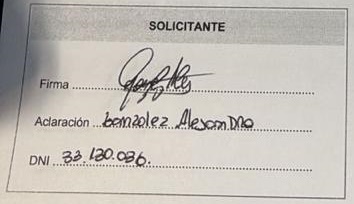 SOLICITANTE
Firma
Aclaración Gonzalez Alejandro
DNI 33.130.036.